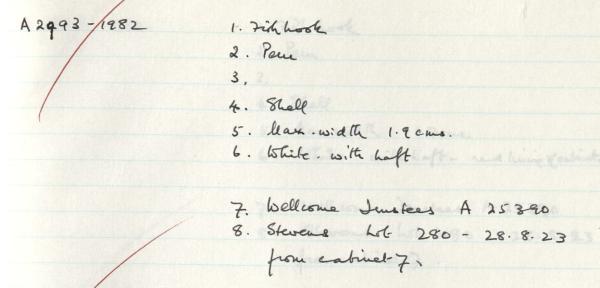 A 2993 - 1982
1. Fishhook
2. Peru
3.
4. Shell
5. Max. width 1.9 cms.
6. White. with haft
7. Wellcome Trustees A 25390
8. Stevens Lot 280 - 28.8.23
from cabinet 7.